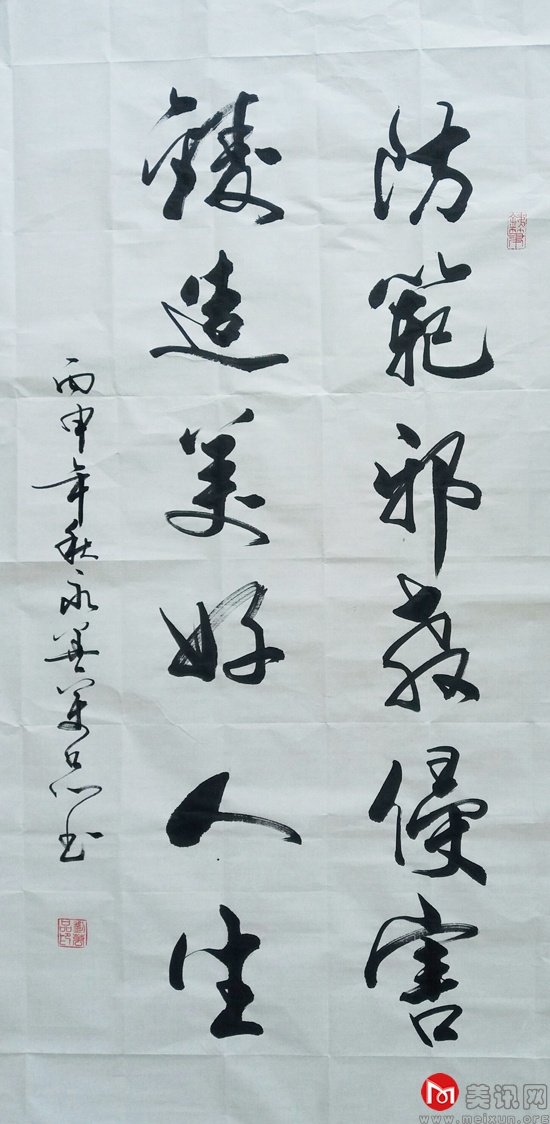 防範邪教侵害
鑄造美好人生
丙申年秋永善品书
美讯网
www.meixun.org